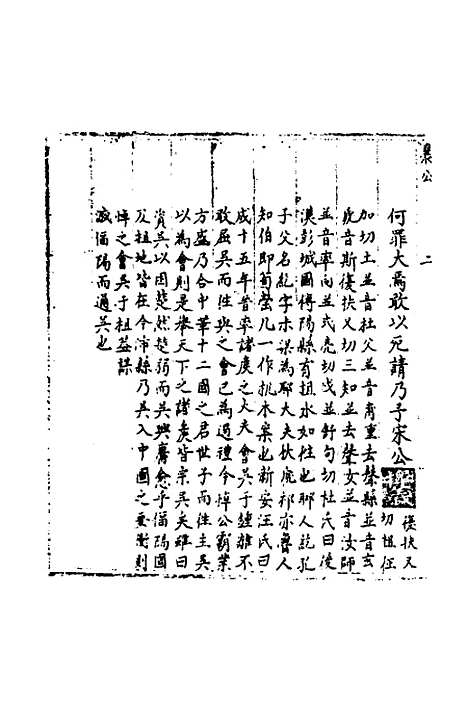 襄公
二
何罪大焉敢以死請乃予宋公
復扶又
切柤任
加切土並音杜父並音甫重去聲縣並音玄
虎音斯復扶又切三知並去聲女並音汝師
並音率向並式亮切戍並舒句切杜氏曰淩
漢彭城國傅陽縣有柤水如徃也郰人紇孔
子父名紇字木梁為郰大夫狄虒祁亦魯人
知伯即荀罃几一作机木案也新安汪氏曰
成十五年晉率諸矦之大夫會吳于鍾離不
敢屈吳而徃與之會已為過禮今悼公霸業
方盛乃合中華十二國之君世子而徃主吳
以為會則是率天下之諸矦皆宗吳矣雖曰
資吳以困楚然楚弱而吳興麿愈乎偪陽國
及柤地皆在今沛縣乃吳入中國之要衝則
悼之會吳于柤蓋謀
滅偪陽而通吳也